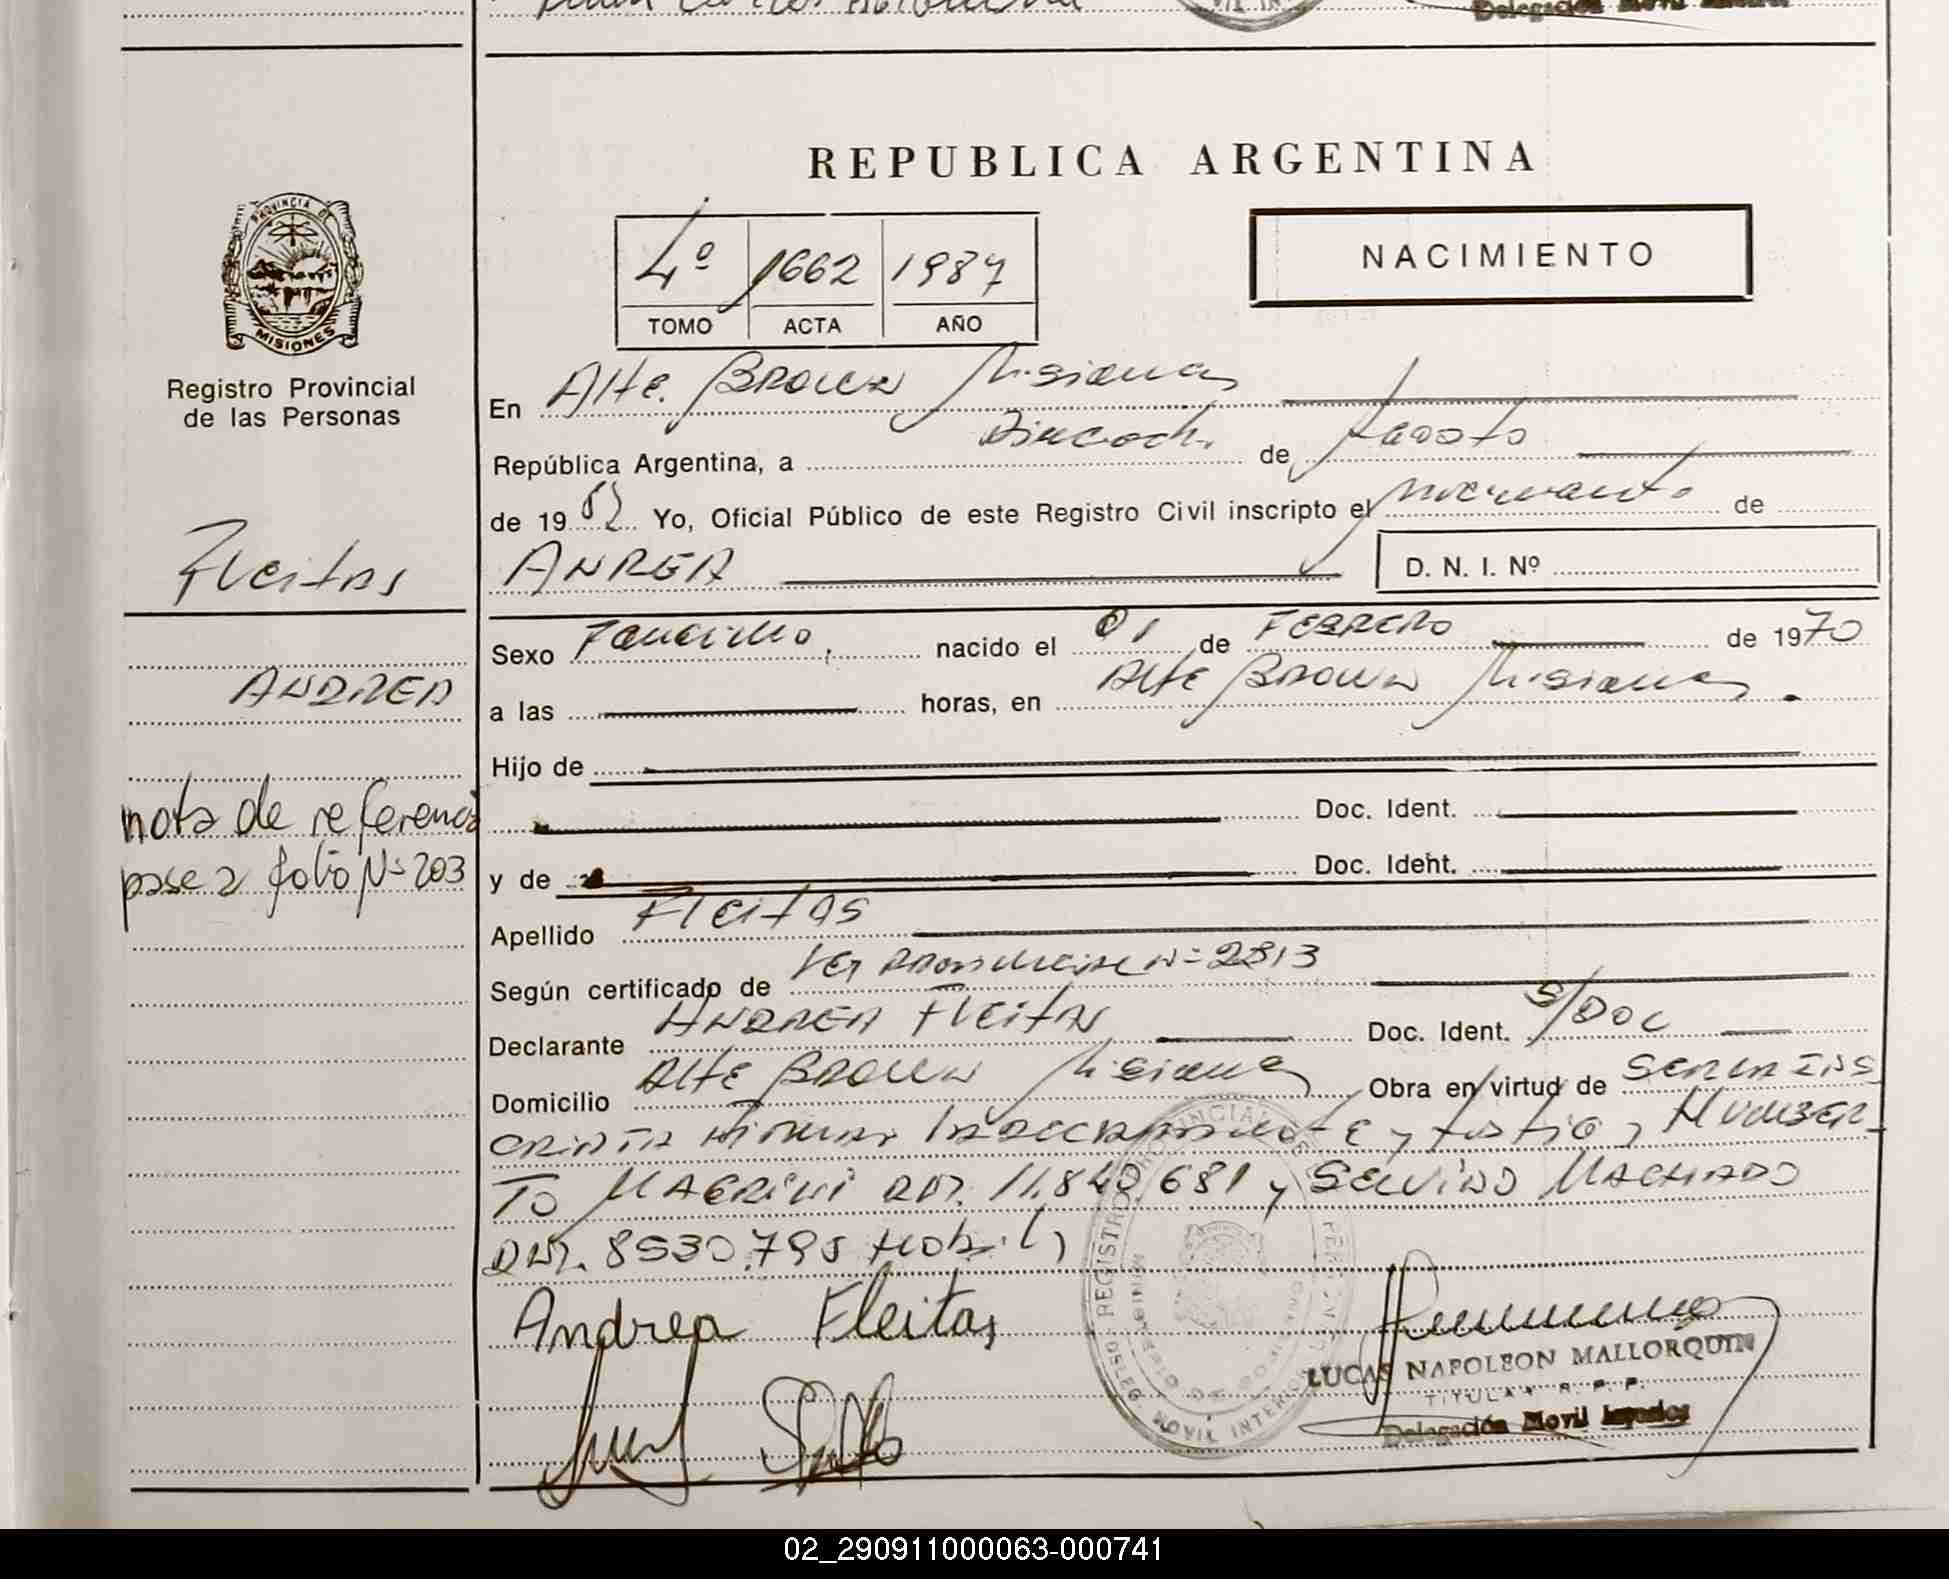 REPUBLICA ARGENTINA
NACIMIENTO
4º 1662 1987
TOMO ACTA AÑO
PROVINCIA DE
MISIONES
Registro Provincial
de las Personas
Fleitas
ANDREA
nota de referencia
pase a folio Nº 203
En Alte. Brown Misiones
República Argentina, a Dieciocho de Agosto
de 19 87 Yo, Oficial Público de este Registro Civil inscripto el nacimiento de
ANREA
D. N. I. Nº
Sexo Femenino, nacido el 01 de FEBRERO de 1970
a las horas, en Alte Brown Misiones.
Hijo de
Doc. Ident.
y de Doc. Ident.
Apellido Fleitas
Según certificado de Ley Nº 2813
Declarante ANDREA Fleitas Doc. Ident. S/Doc
Domicilio Alte Brown Misiones Obra en virtud de
y testigo, HUMBER-
TO MAGRINI DNI. 11.840.681 y SELVINO MACHADO
DNI. 8530.795 Hobil,
Andrea Fleitas
LUCAS NAPOLEON MALLORQUIN
TITULAR R. P. P.
Delegación Movil Interior
02_290911000063-000741